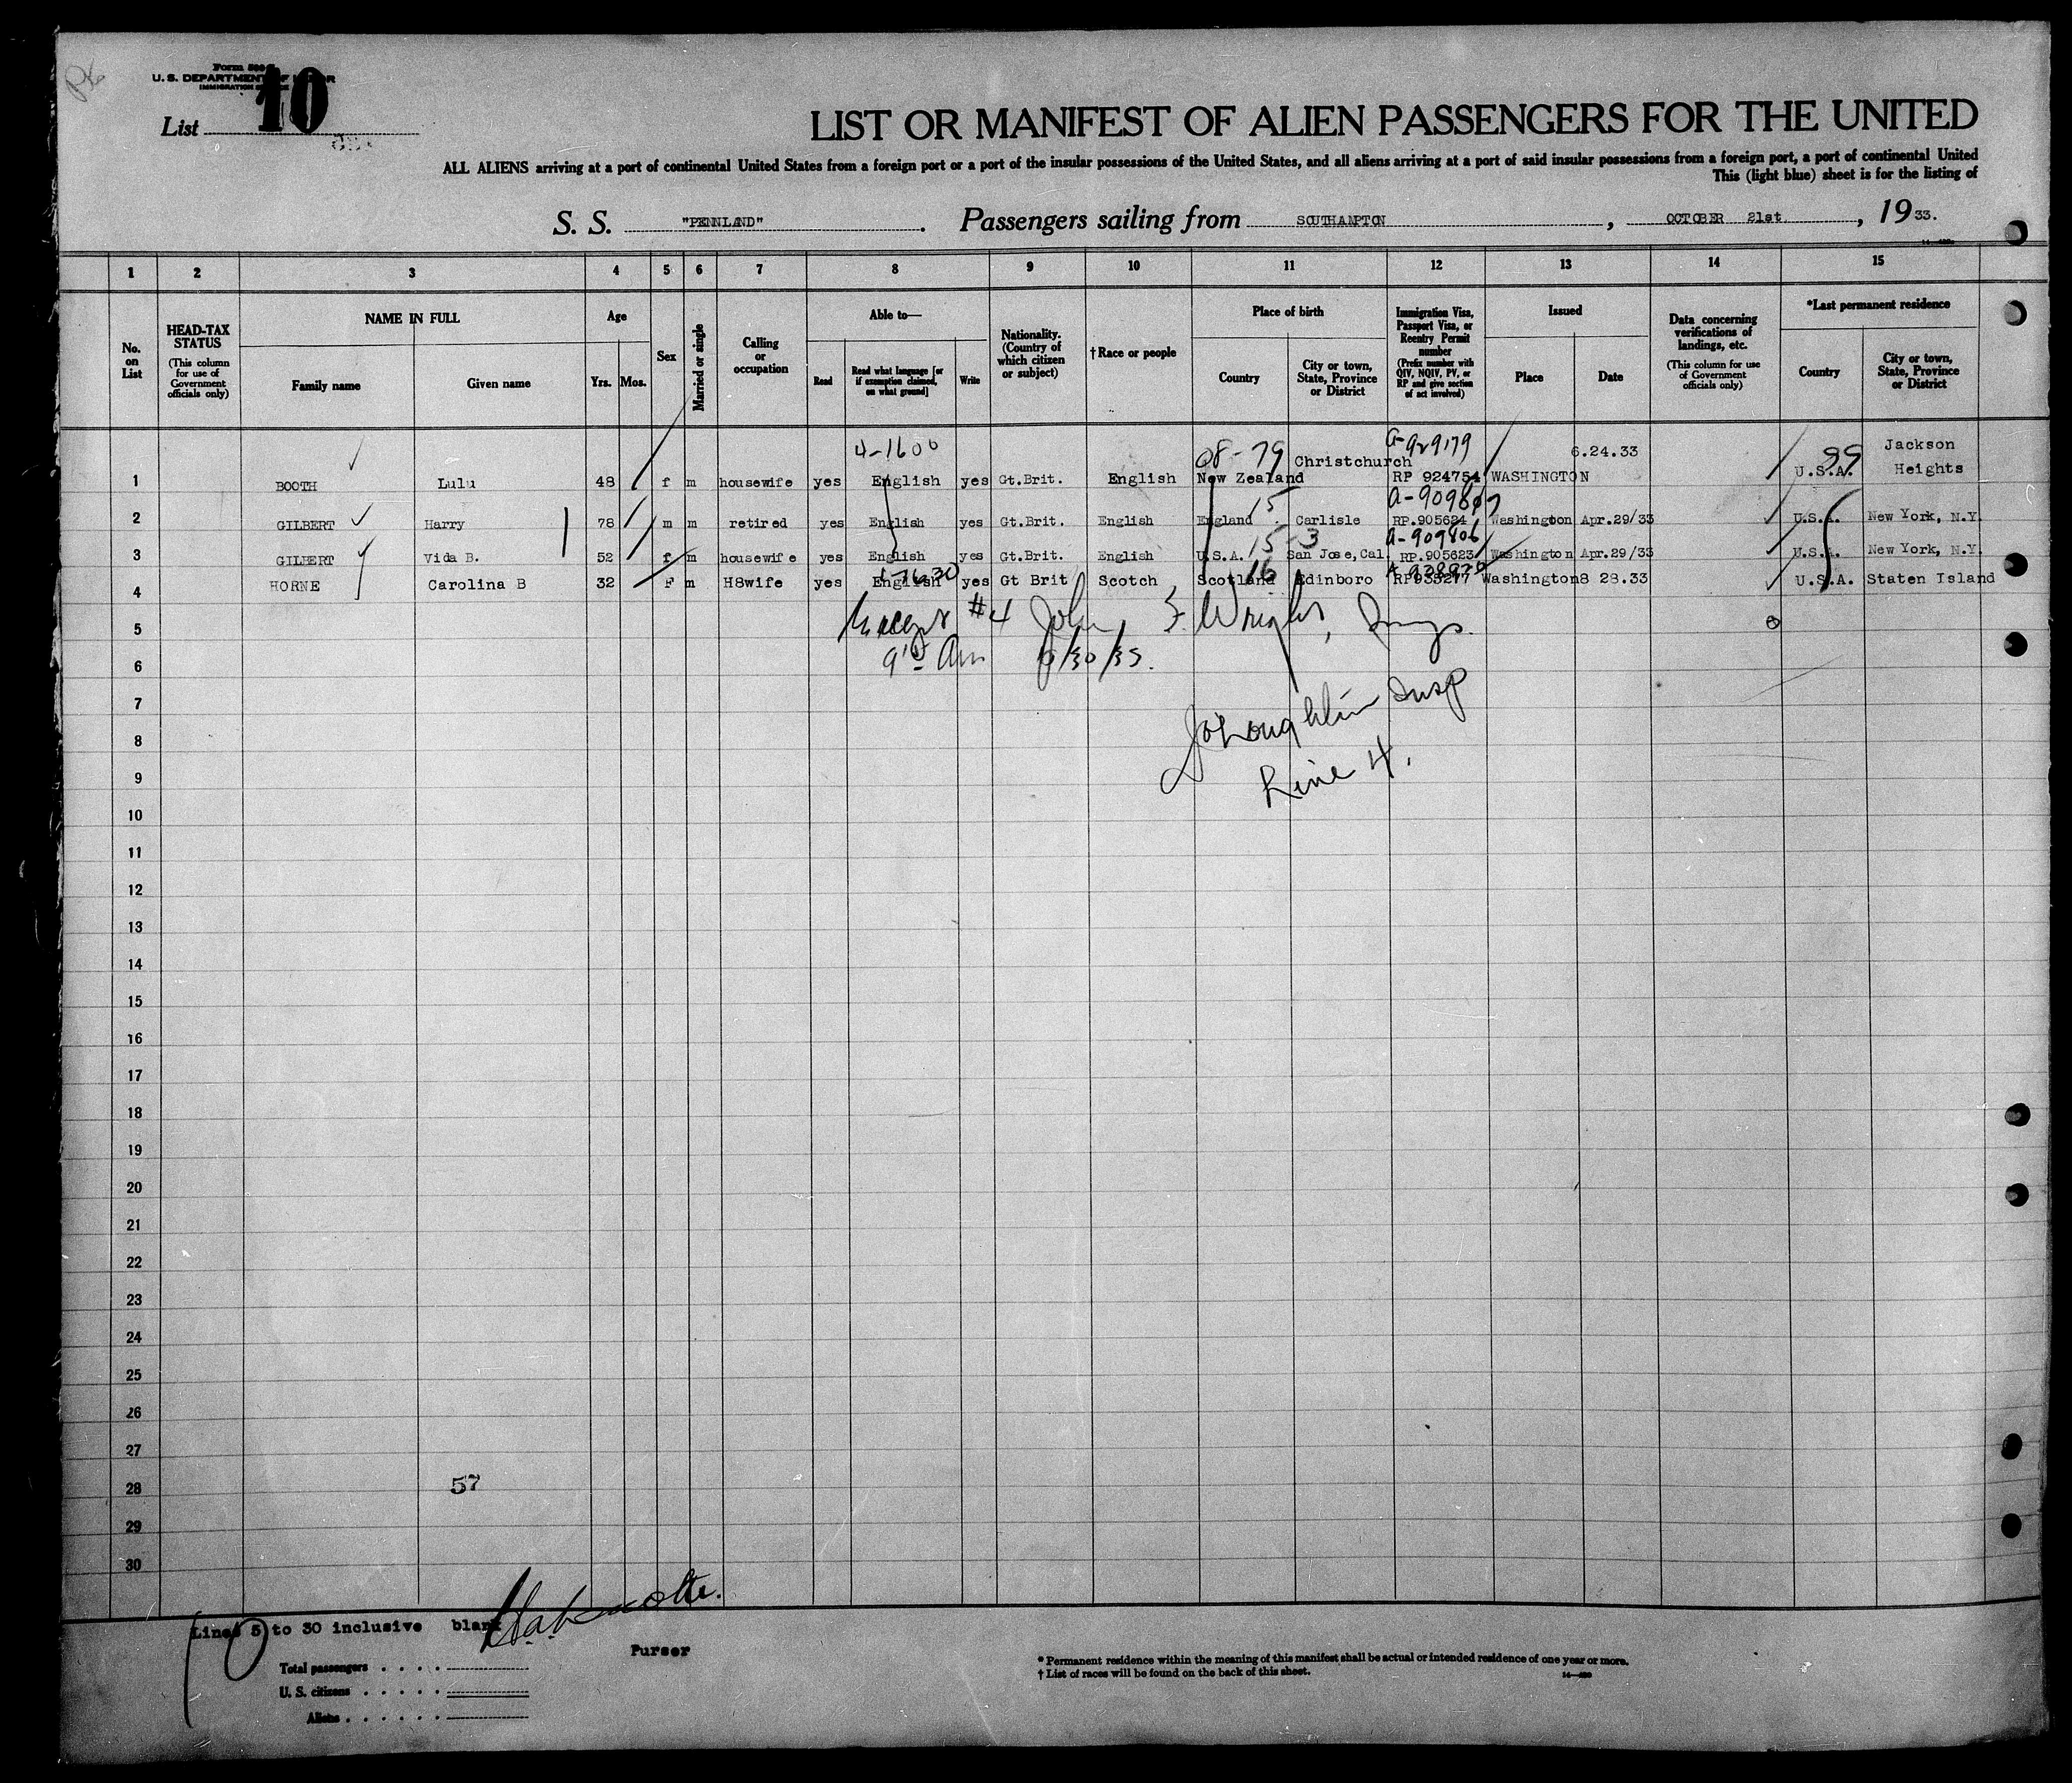 Form 500
U. S. DEPARTMENT OF LABOR
IMMIGRATION SERVICE
List 10
LIST OR MANIFEST OF ALIEN PASSENGERS FOR THE UNITED
ALL ALIENS arriving at a port of continental United States from a foreign port or a port of the insular possessions of the United States, and all aliens arriving at a port of said insular possessions from a foreign port, a port of continental United
This (light blue) sheet is for the listing of
S. S. "PENNLAND". Passengers sailing from SOUTHAMPTON, OCTOBER 21st, 1933.
1 2 3 4 5 6 7 8 9 10 11 12 13 14 15
No. on List
HEAD-TAX STATUS (This column for use of Government officials only)
NAME IN FULL Family name Given name
Age Yrs. Mos.
Sex
Married or single
Calling or occupation
Able to— Read Read what language [or if exemption claimed, on what ground] Write
Nationality. (Country of which citizen or subject)
†Race or people
Place of birth Country City or town, State, Province or District
Immigration Visa, Passport Visa, or Reentry Permit number (Prefix number with QIV, NQIV, PV, or RP and give section of act involved)
Issued Place Date
Data concerning verifications of landings, etc. (This column for use of Government officials only)
*Last permanent residence Country City or town, State, Province or District
4-1600 08-79 A-929179 99
1 BOOTH Lulu 48 f m housewife yes English yes Gt.Brit. English New Zealand Christchurch RP 924754 WASHINGTON 6.24.33 U.S.A. Jackson Heights
15 A-909807
2 GILBERT Harry 78 m m retired yes English yes Gt.Brit. English England Carlisle RP.905624 Washington Apr.29/33 U.S.A. New York, N.Y.
15-3 A-909806
3 GILBERT Vida B. 52 f m housewife yes English yes Gt.Brit. English U.S.A. San Jose,Cal. RP.905623 Washington Apr.29/33 U.S.A. New York, N.Y.
16
4 HORNE Carolina B 32 F m H8wife yes English yes Gt Brit Scotch Scotland Edinboro RP935277 Washington 8 28.33 U.S.A. Staten Island
5 #4 John F. Wright, Insp.
6
7
8
9
Insp
Line 4.
10
11
12
13
14
15
16
17
18
19
20
21
22
23
24
25
26
27
28 57
29
30
Lines 5 to 30 inclusive blank
Purser
Total passengers
U. S. citizens
Aliens
* Permanent residence within the meaning of this manifest shall be actual or intended residence of one year or more.
† List of races will be found on the back of this sheet.